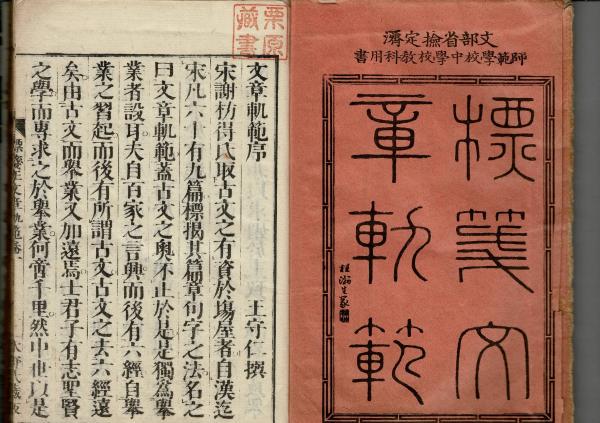 文部省撿定濟
師範學校中學校教科用書
標箋文
章軌範
栗原
藏書
文章軌範序
王守仁撰
宋謝枋得氏取古文之有資於場屋者自漢迄
宋凡六十有九篇標揭其篇章句字之法名之
曰文章軌範蓋古文之奧不止於是是獨為舉
業者設耳夫自百家之言興而後有六經自舉
業之習起而後有所謂古文古文之去六經遠
矣由古文而舉業又加遠焉士君子有志聖賢
之學而專求之於舉業何啻千里然中世以是